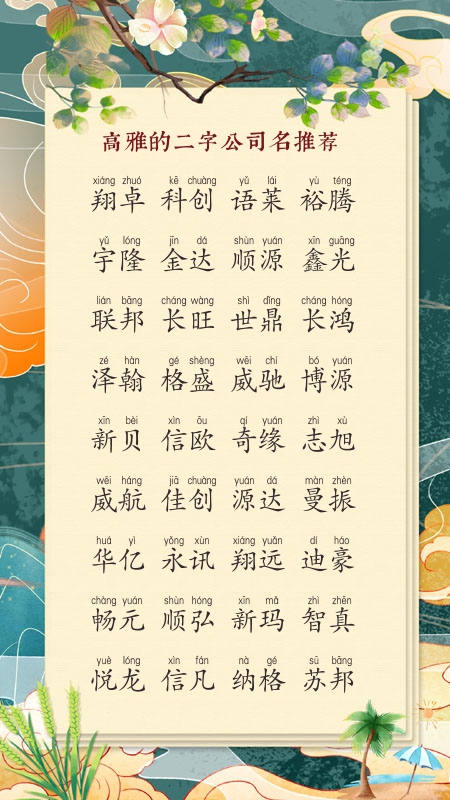 高雅的二字公司名推荐
xiáng zhuó kē chuàng yǔ lái yù téng
翔卓 科创 语莱 裕腾
yǔ lóng jīn dá shùn yuán xīn guāng
宇隆 金达 顺源 鑫光
lián bāng cháng wàng shì dǐng cháng hóng
联邦 长旺 世鼎 长鸿
zé hàn gé shèng wēi chí bó yuán
泽翰 格盛 威驰 博源
xīn bèi xìn ōu qí yuán zhì xù
新贝 信欧 奇缘 志旭
wēi háng jiā chuàng yuán dá màn zhèn
威航 佳创 源达 曼振
huá yì yǒng xùn xiáng yuǎn dí háo
华亿 永讯 翔远 迪豪
chàng yuán shùn hóng xīn mǎ zhì zhēn
畅元 顺弘 新玛 智真
yuè lóng xìn fán nà gé sū bāng
悦龙 信凡 纳格 苏邦